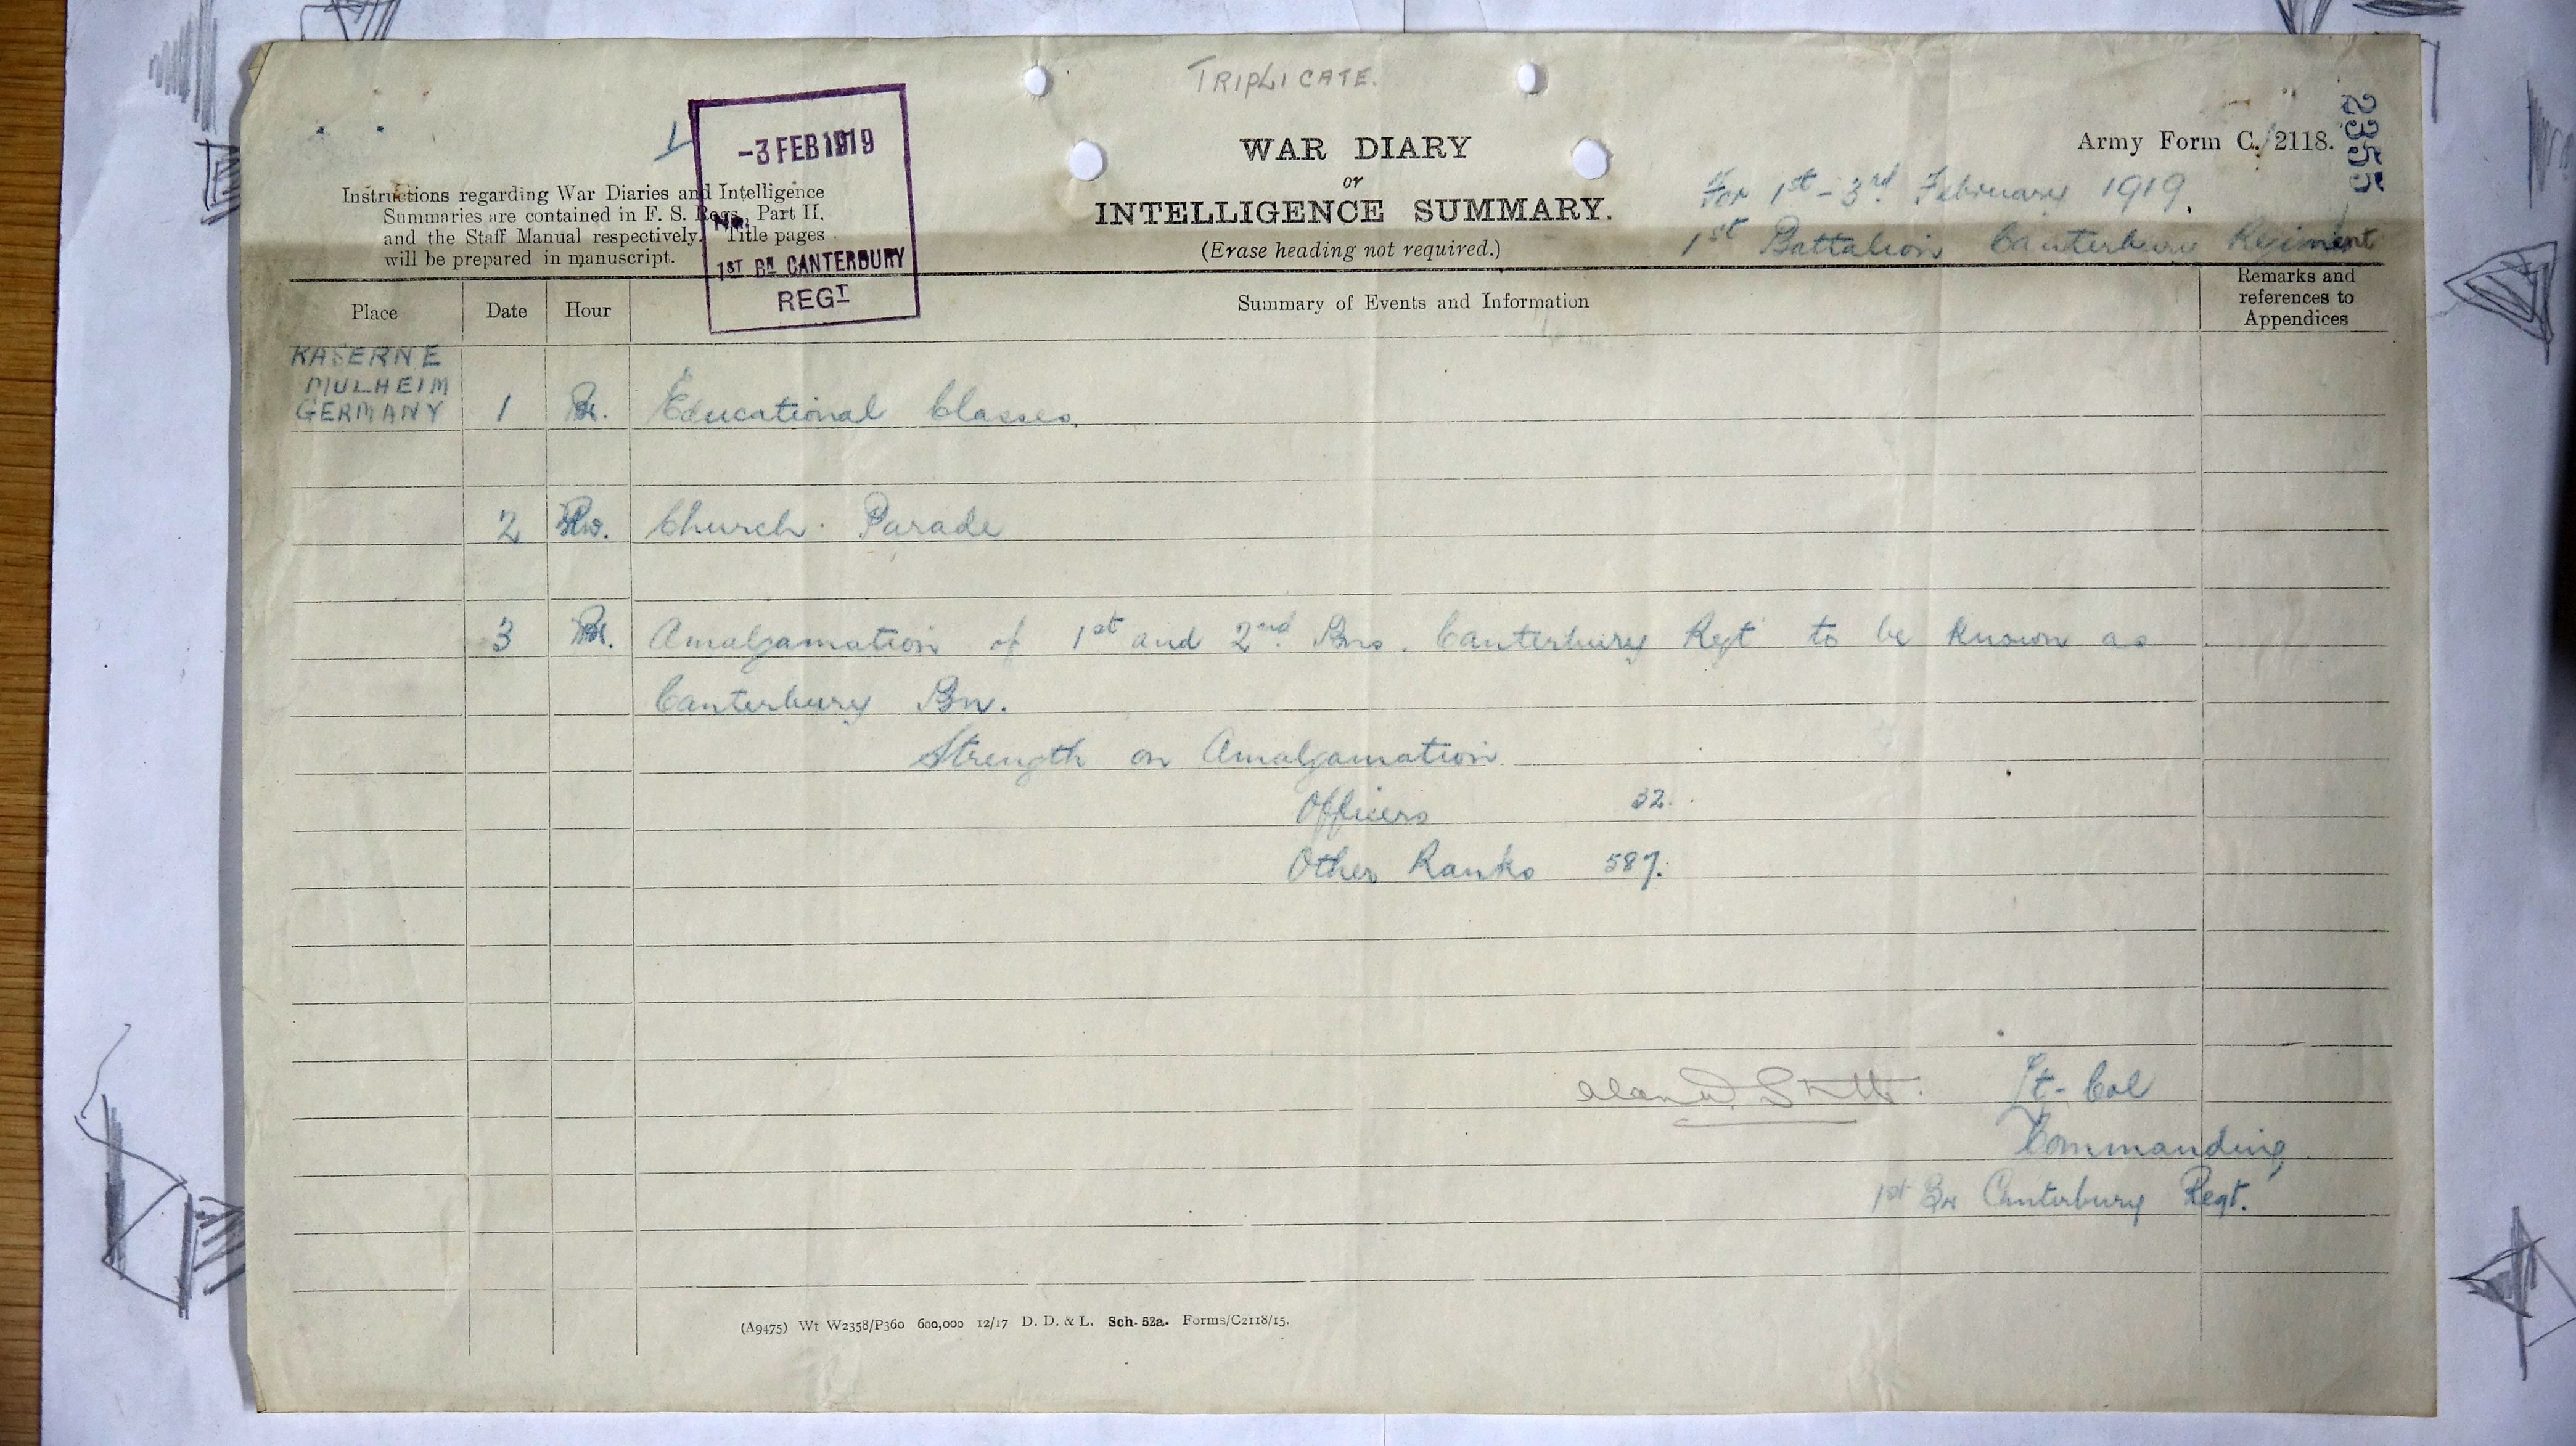 TRIPLICATE.
-3 FEB 1919
No.
1ST BN CANTERBURY
REGT
2355
Army Form C. 2118.
WAR DIARY
or
INTELLIGENCE SUMMARY.
(Erase heading not required.)
Instructions regarding War Diaries and Intelligence
Summaries are contained in F. S. Regs., Part II.
and the Staff Manual respectively. Title pages
will be prepared in manuscript.
For 1st - 3rd February 1919.
1st Battalion Canterbury Regiment
Place Date Hour Summary of Events and Information Remarks and references to Appendices
KASERNE
MULHEIM
GERMANY 1 Educational Classes.
2 Church Parade
3 Amalgamation of 1st and 2nd Bns. Canterbury Regt to be known as
Canterbury Bn.
Strength on Amalgamation
Officers 32.
Other Ranks 587.
Lt-Col
Commanding
1st Bn Canterbury Regt.
(A9475) Wt W2358/P360 600,000 12/17 D. D. & L. Sch. 52a. Forms/C2118/15.